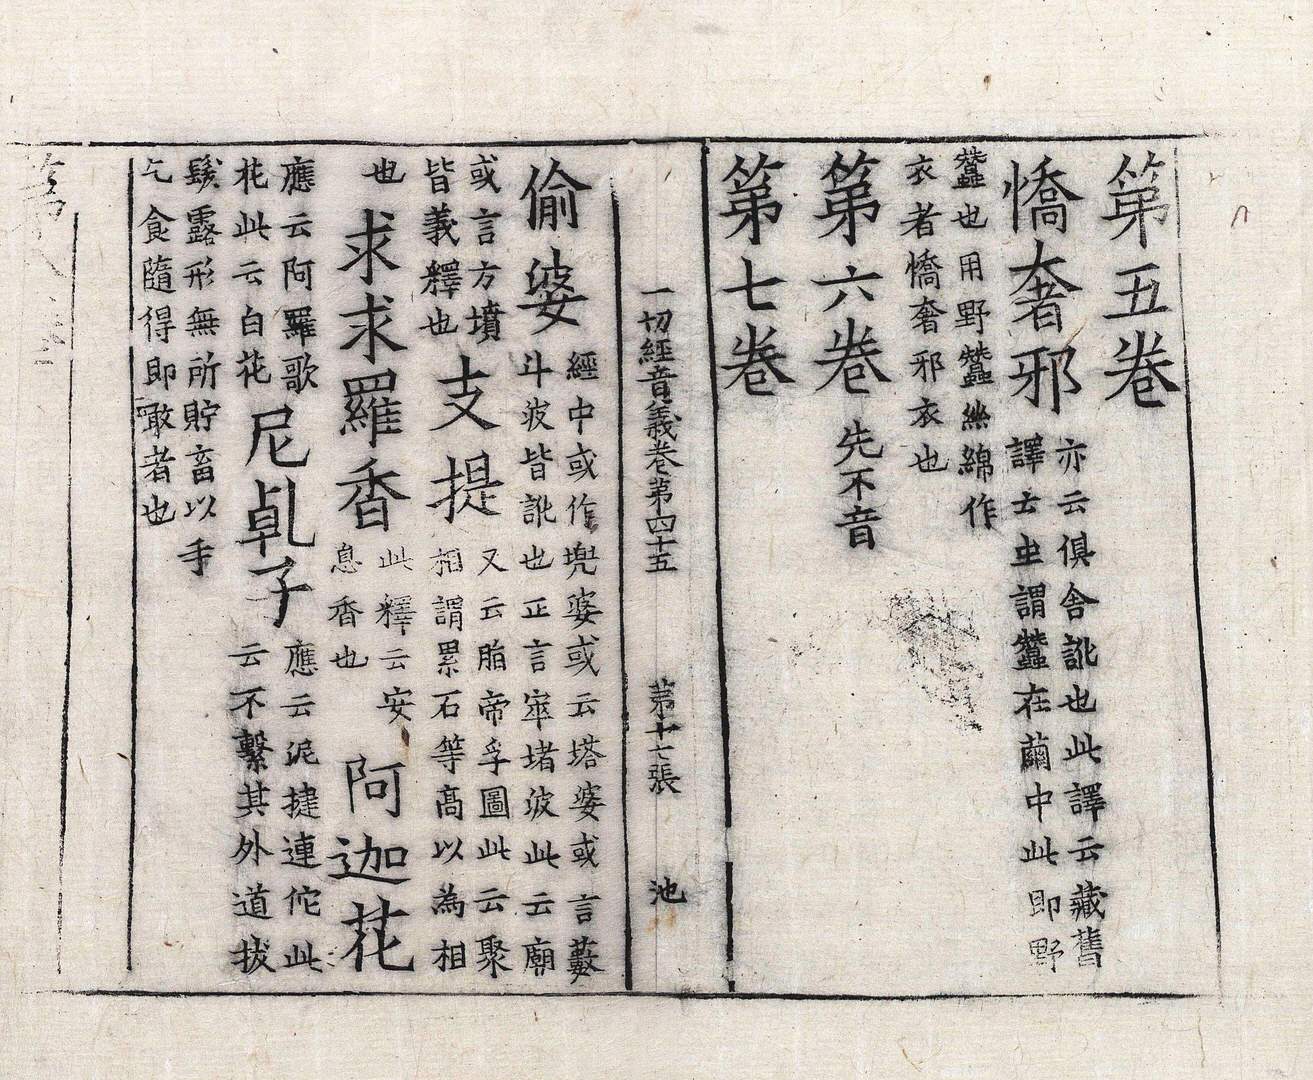 第五卷
憍奢邪
亦云俱舍訛也此譯云藏舊
譯云虫謂蠶在繭中此即野
蠶也用野蠶絲綿作
衣者憍奢邪衣也
第六卷
先不音
第七卷
一切經音義卷第四十五 第十七張 池
偷婆
經中或作兜婆或云塔婆或言藪
斗波皆訛也正言窣堵波此云廟
或言方墳
皆義釋也
支提
又云脂帝孚圖此云聚
相謂累石等高以為相
也
求求羅香
此釋云安
息香也
阿迦花
應云阿羅歌
花此云白花
尼乹子
應云泥揵連佗此
云不繫其外道拔
髮露形無所貯畜以手
乞食隨得即噉者也